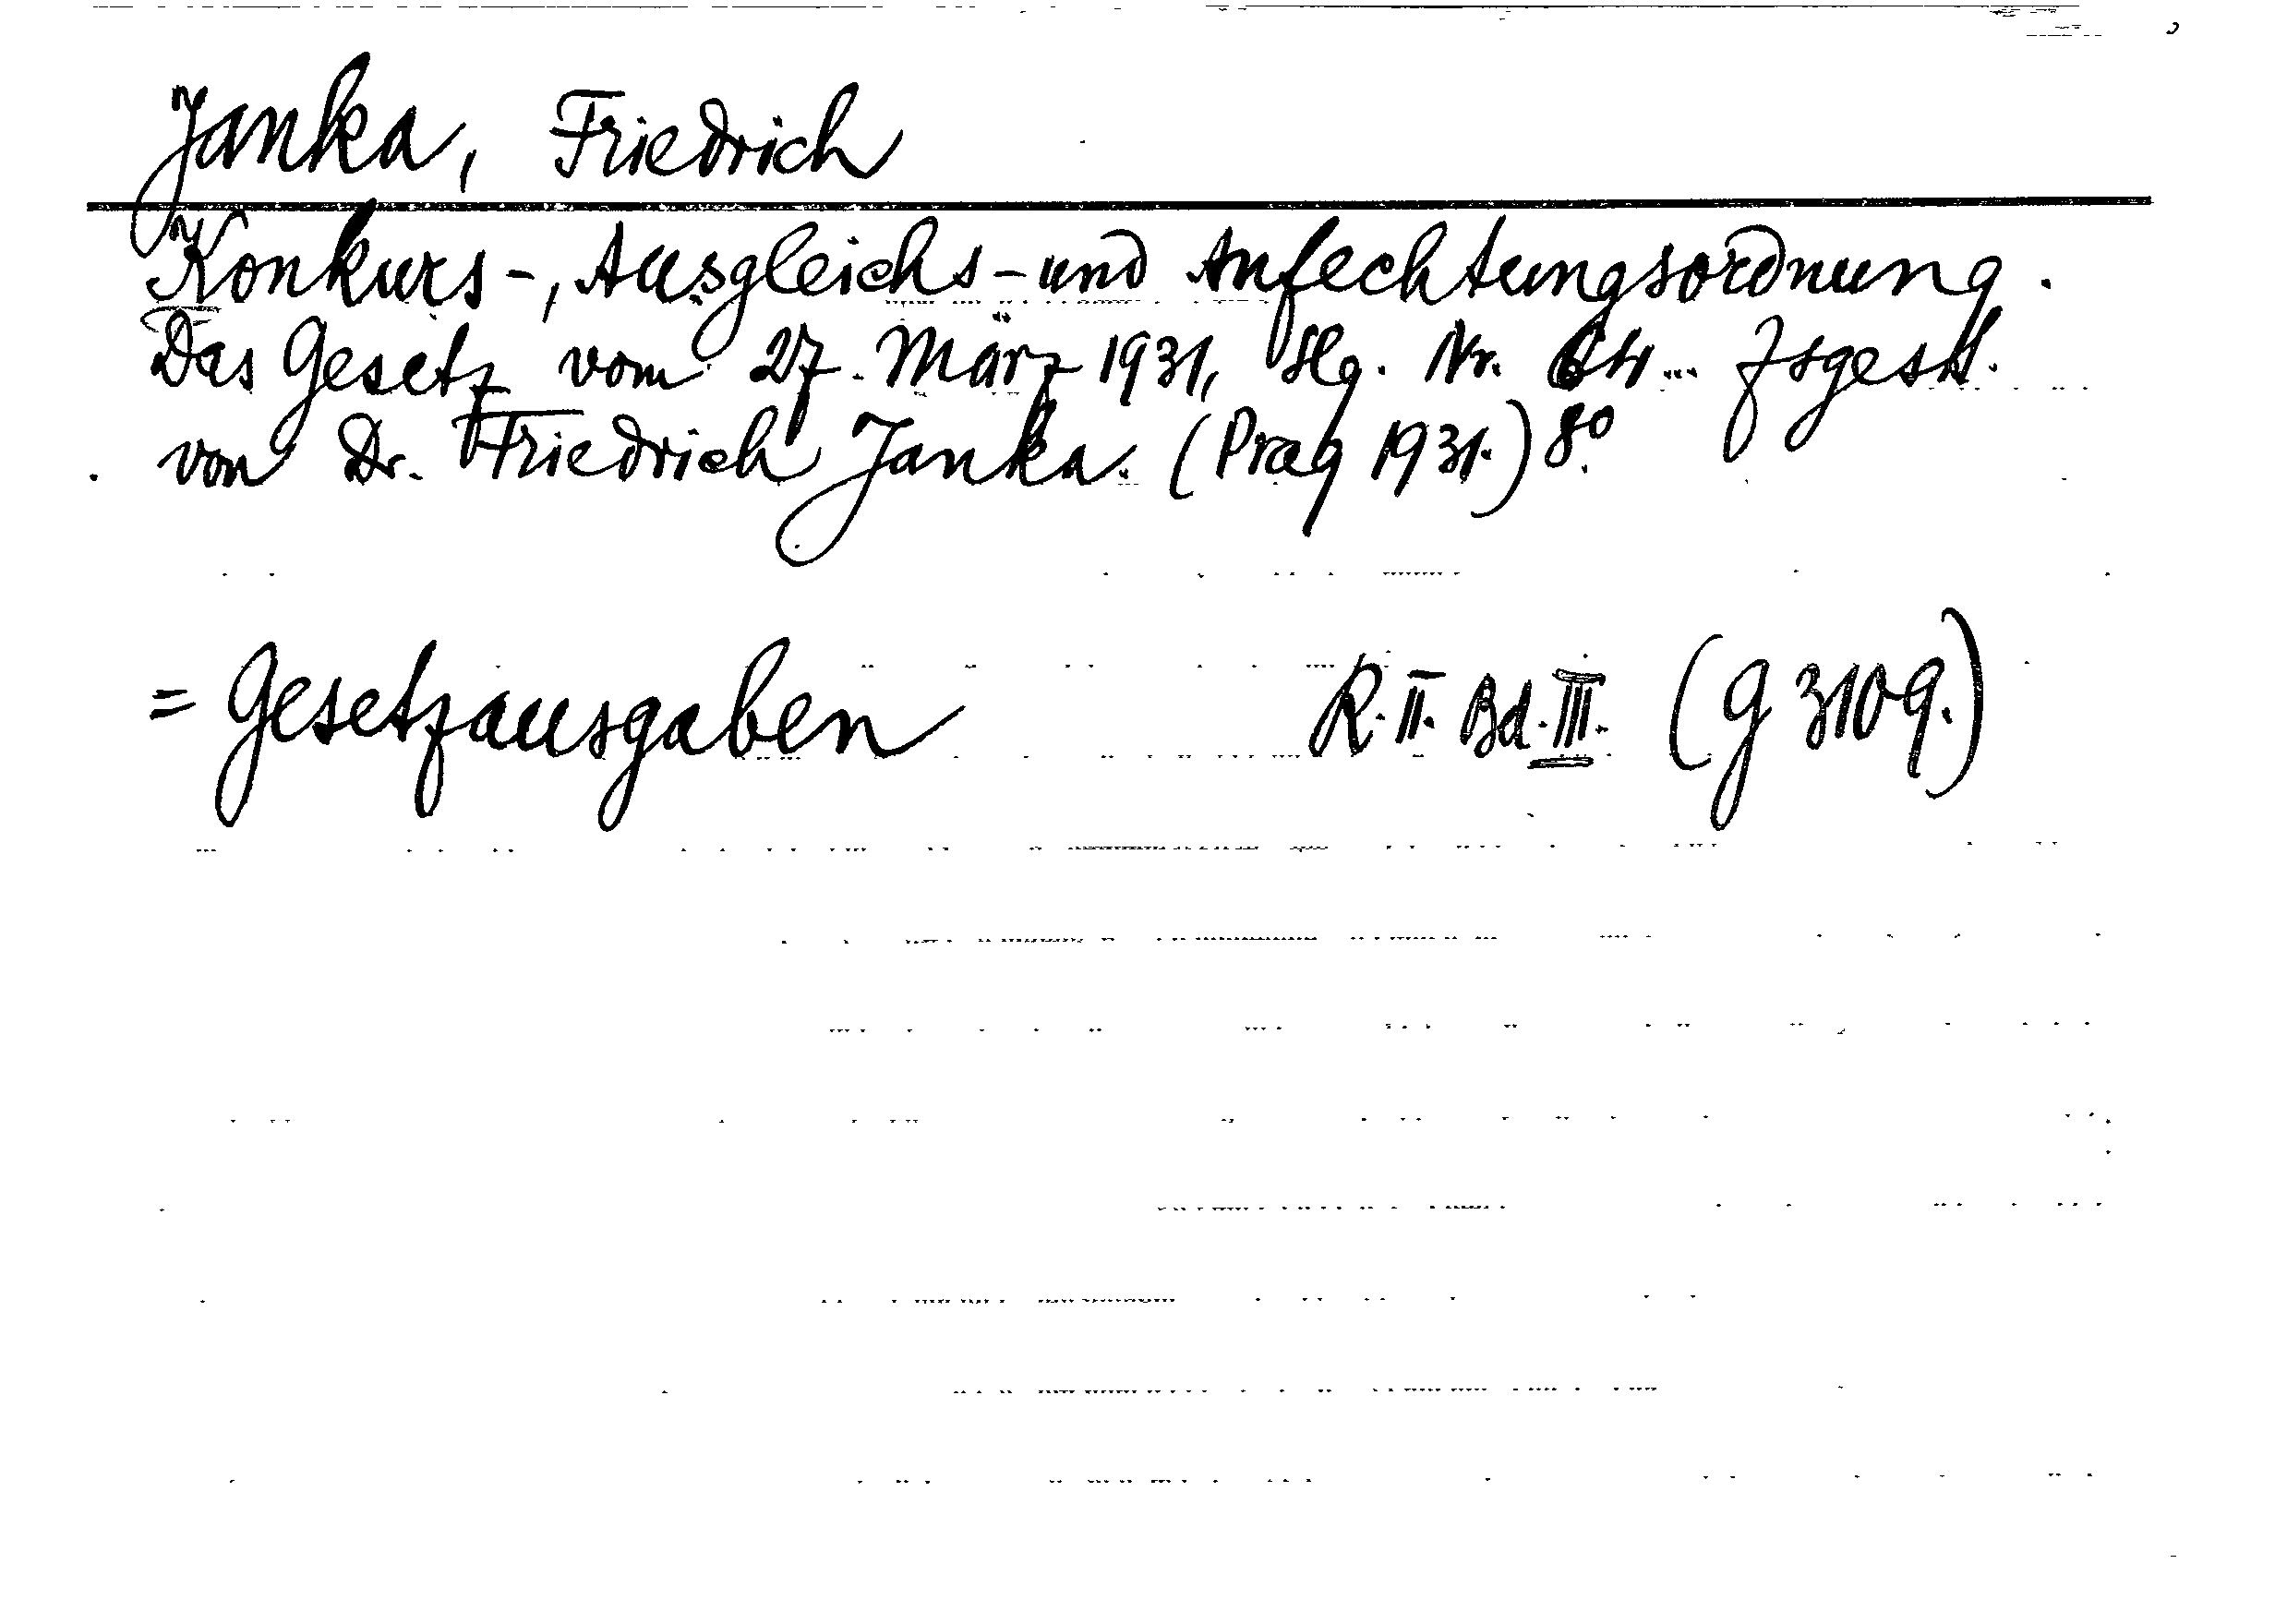 Janka, Friedrich
Konkurs-, Ausgleichs- und Anfechtungsordnung.
Das Gesetz vom 27. März 1931, Slg. Nr. 64... Zsgest.
von Dr. Friedrich Janka. (Prag 1931.) 8°.
= Gesetzausgaben R. II. Bd. III. (G 3109.)